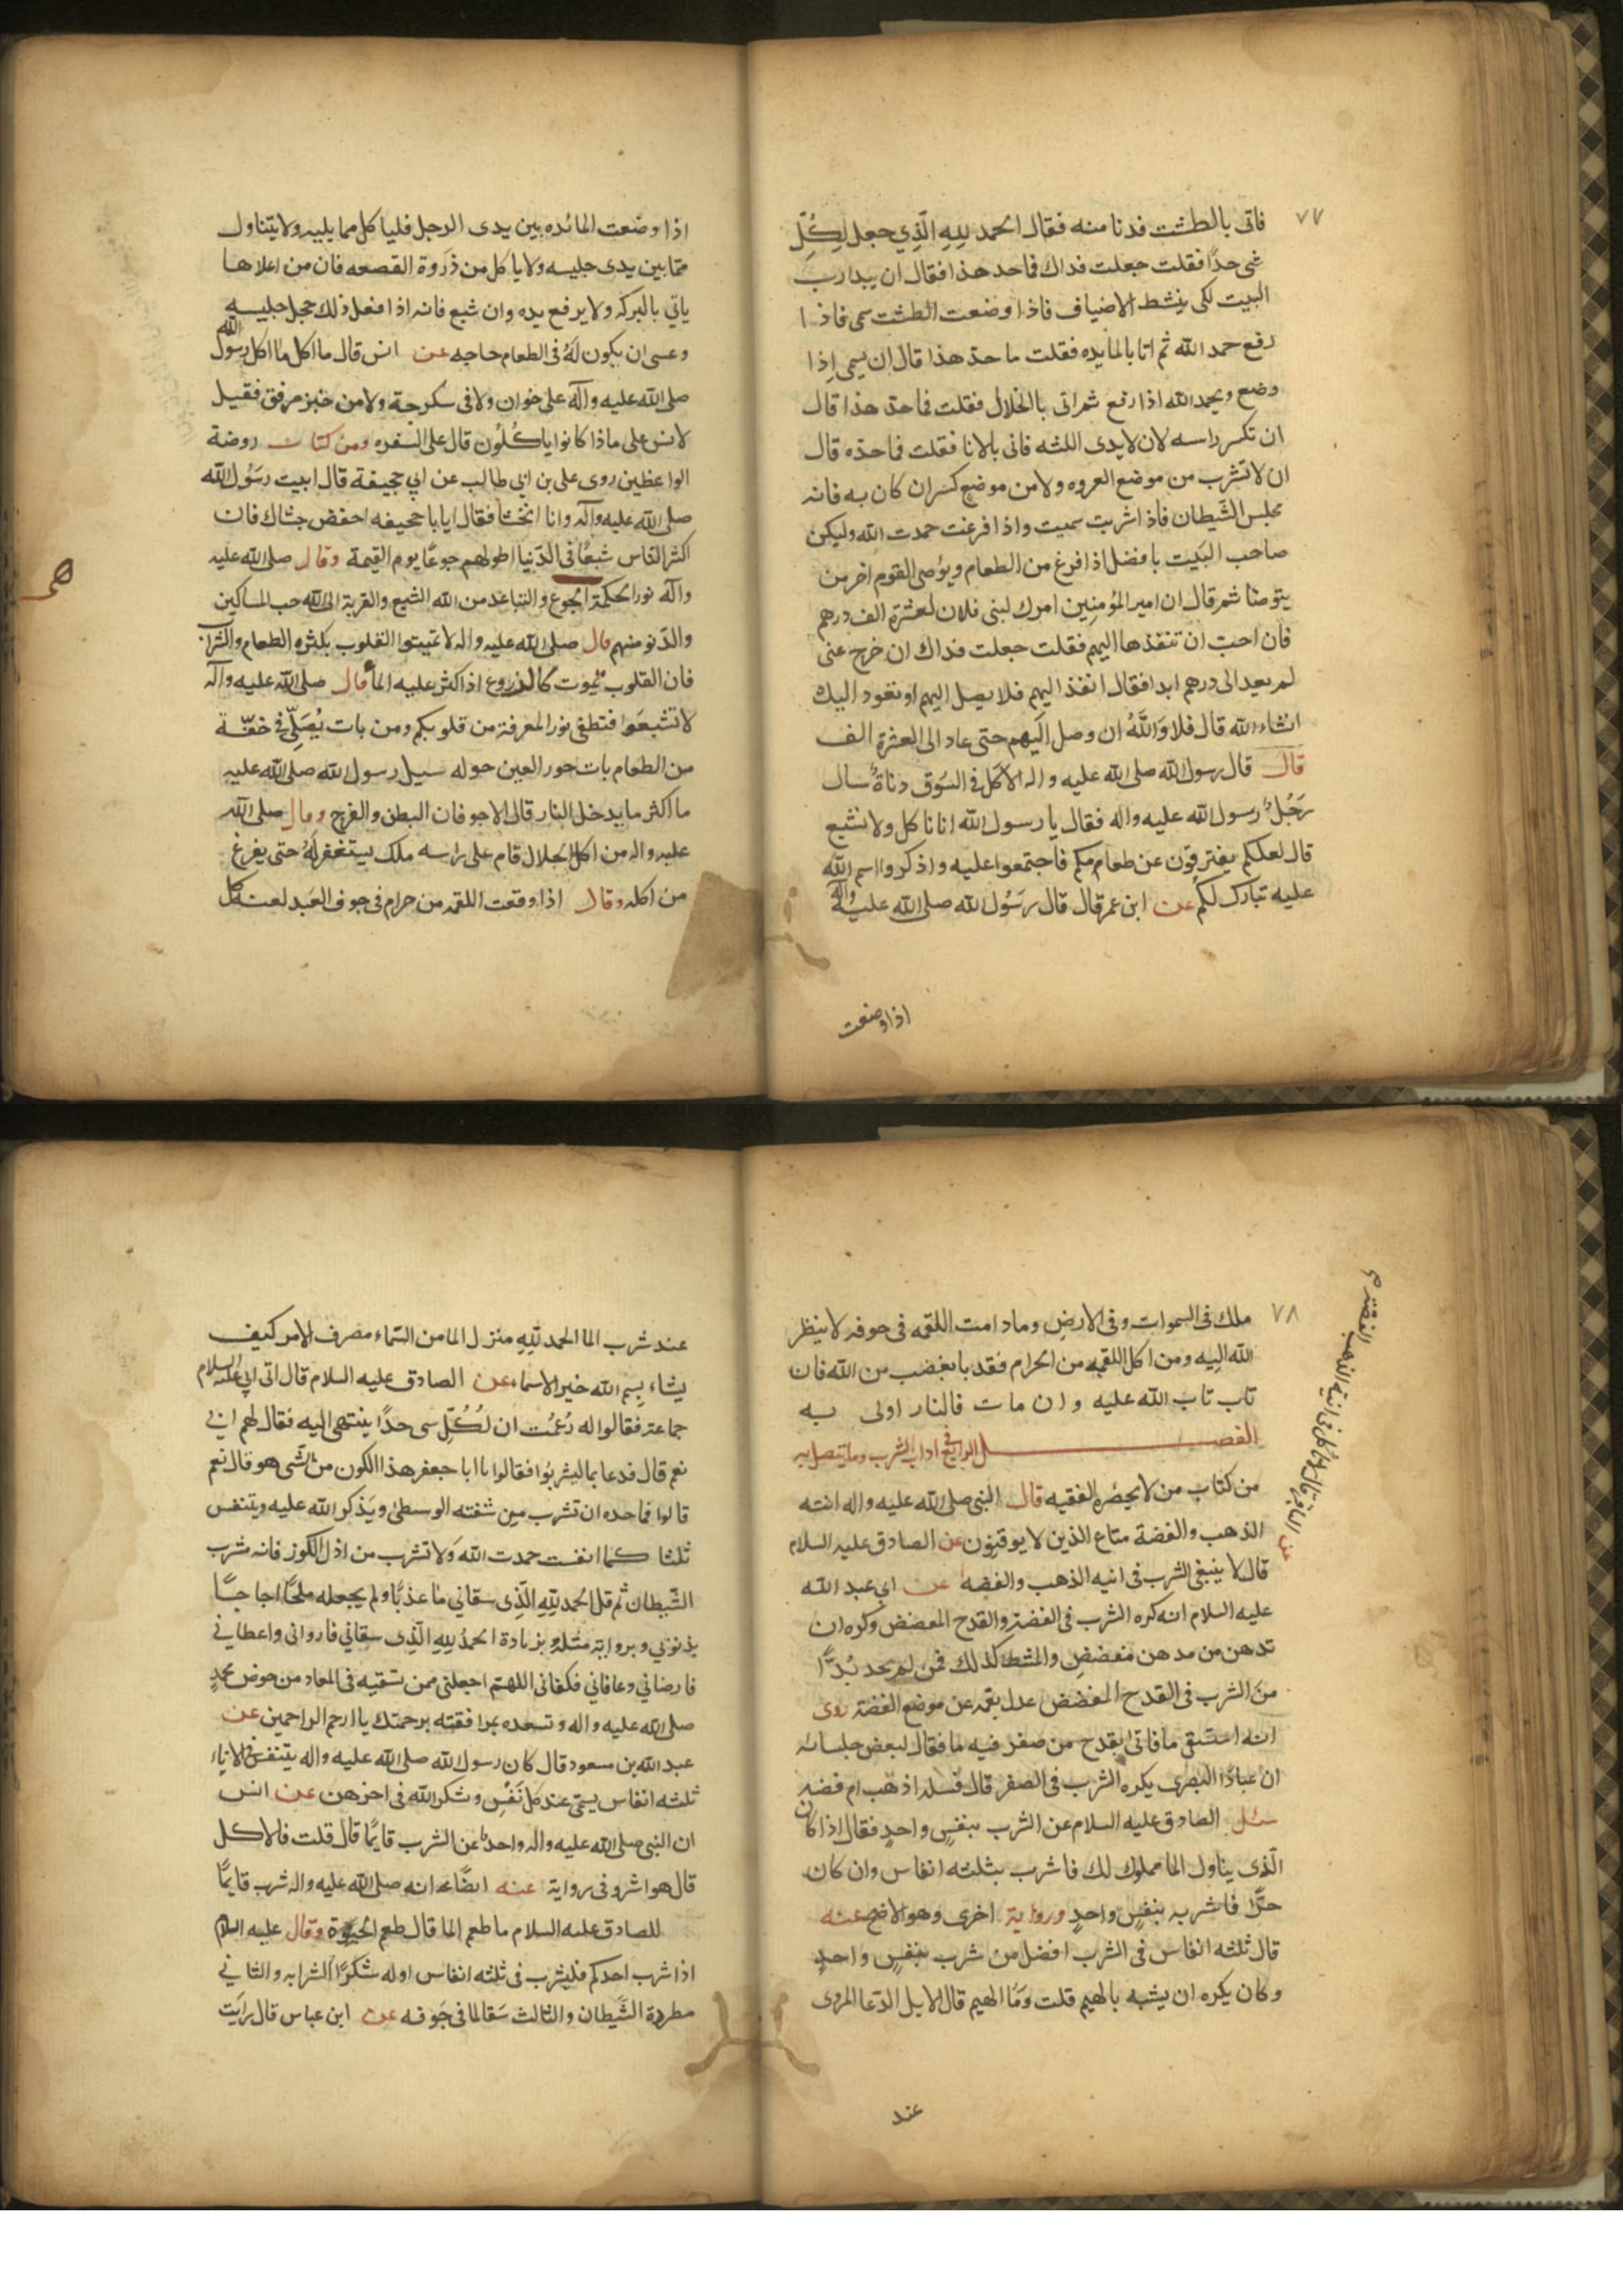 ٧٧
فاتى بالطشت فدنا منه فقال الحمد لِلهِ الَّذِي جعل لِكُلِّ
شى حدًا فقلت جعلت فداك فاحد هذا فقال ان يبدا رب
البيت لكى ينشط الاضياف فاذا وضعت الطشت سمى فاذا
رفع حمد الله ثم اتا بالمايده فقلت ما حد هذا قال ان يسمى اذا
وضع ويحمد الله اذا رفع ثم اتى بالخلال فقلت فما حد هذا قال
ان تكسر راسه لان لا يدى اللثه فاتى بالانا فقلت فما حده قال
ان لا تشرب من موضع العروه ولا من موضع كسر ان كان به فانه
مجلس الشَّيطان فاذا شربت سميت واذا فرغت حمدت الله وليكن
صاحب البَيت يا فضل اذا فرغ من الطعام ويؤضى القوم اخر من
يتوضا ثم قال ان امير المؤمنين امرك لبنى فلان لعشرة الف درهم
فان احبّ ان تنفذها اليهم فقلت جعلت فداك ان خرج عنى
لم يعد الى درهم ابدا فقال انفذ اليهم فلا يصل اليهم او تعود اليك
انشاء الله قال فلا وَاللَّهُ ان وصل اليهم حتى عاد الى العشرة الف
قال قال رسول الله صلى الله عليه واله الاكل فى السّوق دناةٌ سال
رَجُلٌ رسول الله عليه واله فقال يا رسول الله انا ناكل ولا نشبع
قال لعلكم يفترقون عن طعامكم فاجتمعوا عليه واذكروا اسم الله
عليه تبارك لكم عن ابن عمر قال قال رَسُول الله صلى الله عليه واله
اذا وضعت
اذا وضعت المائده بين يدى الرجل فليا كل مما يليه ولا يتناول
ممّا بين يدى جليسه ولا ياكل من ذَروة القصعه فان من اعلاها
ياتى بالبركه ولا يرفع يده وان شبع فانه اذا فعل ذلك خجل جليسه
وعسى ان يكون لَهُ فى الطعام حاجه عن انس قال ما اكل ما اكل رسول الله
صلى الله عليه وآله على خوان ولا فى سكرجة ولا من خبز مرقق فقيل
لانس على ماذا كانوا ياكُلُون قال على السفره ومن كتاب روضة
الواعظين روى على بن ابى طالب عن ابى جحيفة قال اتيت رسُول الله
صلى الله عليه وآله وانا اتخشا فقال ايا با جحيفه اخفض جشاك فان
اكثر الناس شبعًا فى الدّنيا اطولهم جوعًا يوم القيمة وقال صلى الله عليه
وآله نور الحكمة الجوع والتباعد من الله الشبع والقربة الى الله حب المساكين
والدّنو منهم قال صلى الله عليه واله لا تميتوا القلوب بكثره الطعام والشراب
فان القلوب تموت كالزروع اذا كثر عليه الما قال صلى الله عليه وآله
لا تشبعَوا فتطفى نور المعرفة من قلوبكم ومن بات يُصَلّى فى خفّة
من الطعام بات حور العين حوله سيل رسول الله صلى الله عليه
ما اكثر ما يدخل النار قال الاجوفان البطن والفرج وقال صلى الله
عليه واله من اكل الحلال قام على راسه ملك يستغفر لَهُ حتى يفرغ
من اكله وقال اذا وقعت اللقمه من حرام فى جوف العَبد لعنه كل
٧٨
ملك فى السموات وفى الارض وما دامت اللقمه فى جوفه لا ينظر
الله اليه ومن اكل اللقمه من الحرام فقد با بغضب من الله فان
تاب تاب الله عليه وان مات فالنار اولى به
الفصل الرابع فى اداب الشرب وما يتصل به
من كتاب من لا يحضره الفقيه قال النبى صلى الله عليه واله انيه
الذهب والفضة متاع الذين لا يوقنون عن الصادق عليه السلام
قال لا ينبغى الشرب فى انيه الذهب والفضه عن ابى عبد الله
عليه السلام انه كره الشرب فى الفضة والقدح المفضض وكره ان
تدهن من مدهن مفضض والمشط كذلك فمن لم يجد بُدًّا
من الشرب فى القدح المفضض عدل بفمه عن موضع الفضة روى
انه استسقى ما فاتى بقدح من صفر فيه ما فقال لبعض جلسائه
ان عبادًا البصرى يكره الشرب فى الصفر قال فسله اذهب ام فضه
سئل الصادق عليه السلام عن الشرب بنفسٍ واحدٍ فقال اذا كان
الّذى يناول الما مملوك لك فاشرب بثلثه انفاس وان كان
حرًّا فاشربه بنفسٍ واحدٍ وروايه اخرى وهو الاصح عنه
قال ثلثه انفاس فى الشرب افضل من شرب بنفسٍ واحدٍ
وكان يكره ان يشبه بالهيم قلت وَما الهيم قال الابل الدّعا المروى
عند
عند شرب الما الحمد لِلهِ منزل الما من السّماء مصرف الامر كيف
يشاء بِسم الله خير الاسماء عن الصادق عليه السلام قال اتى ابى عليه السلام
جماعة فقالوا له زعمت ان لُكُلّ شى حدًا ينتهى اليه فقال لهم ابى
نعم قال فدعا بما ليشربُوا فقالوا يا ابا جعفر هذا الكون من الشّى هو قال نعم
قالوا فما حده ان تشرب من شفته الوسطى ويَذكر الله عليه ويتنفس
ثلثا كما انفست حمدت الله وَلا تشرب من اذن الكوز فانه شرب
الشّيطان ثم قل الحمد لِلهِ الَّذِى سقانى ما عذبًا ولم يجعله ملحًا اجاجًا
بذنوبى وبروايه مثله بزيادة الحمدُ لِلهِ الَّذِى سقانى فاروانى واعطانى
فارضانى وعافانى فكفانى اللهم اجعلنى ممن تسقيه فى المعاد من حوض محمدٍ
صلى الله عليه واله وتسعده بمرافقته برحمتك يا ارحم الراحمين عن
عبد الله بن مسعود قال كان رسول الله صلى الله عليه واله يتنفس فى الاناء
ثلثه انفاس يسمى عند كل نَفَسٍ وشكر الله فى اخرهن عن انس
ان النبى صلى الله عليه واله عن الشرب قايمًا قال قلت فالاكل
قال هو اشر وفى رواية عنه ايضًا انه صلى الله عليه واله شرب قايمًا
للصادق عليه السلام ما طعم الما قال طعم الحيوة وقال عليه السلام
اذا شرب احدكم فليشرب فى ثلثه انفاس اوله شكرًا لشرابه والثانى
مطردة الشّيطان والثالث شفا لما فى جَوفه عن ابن عباس قال رايت